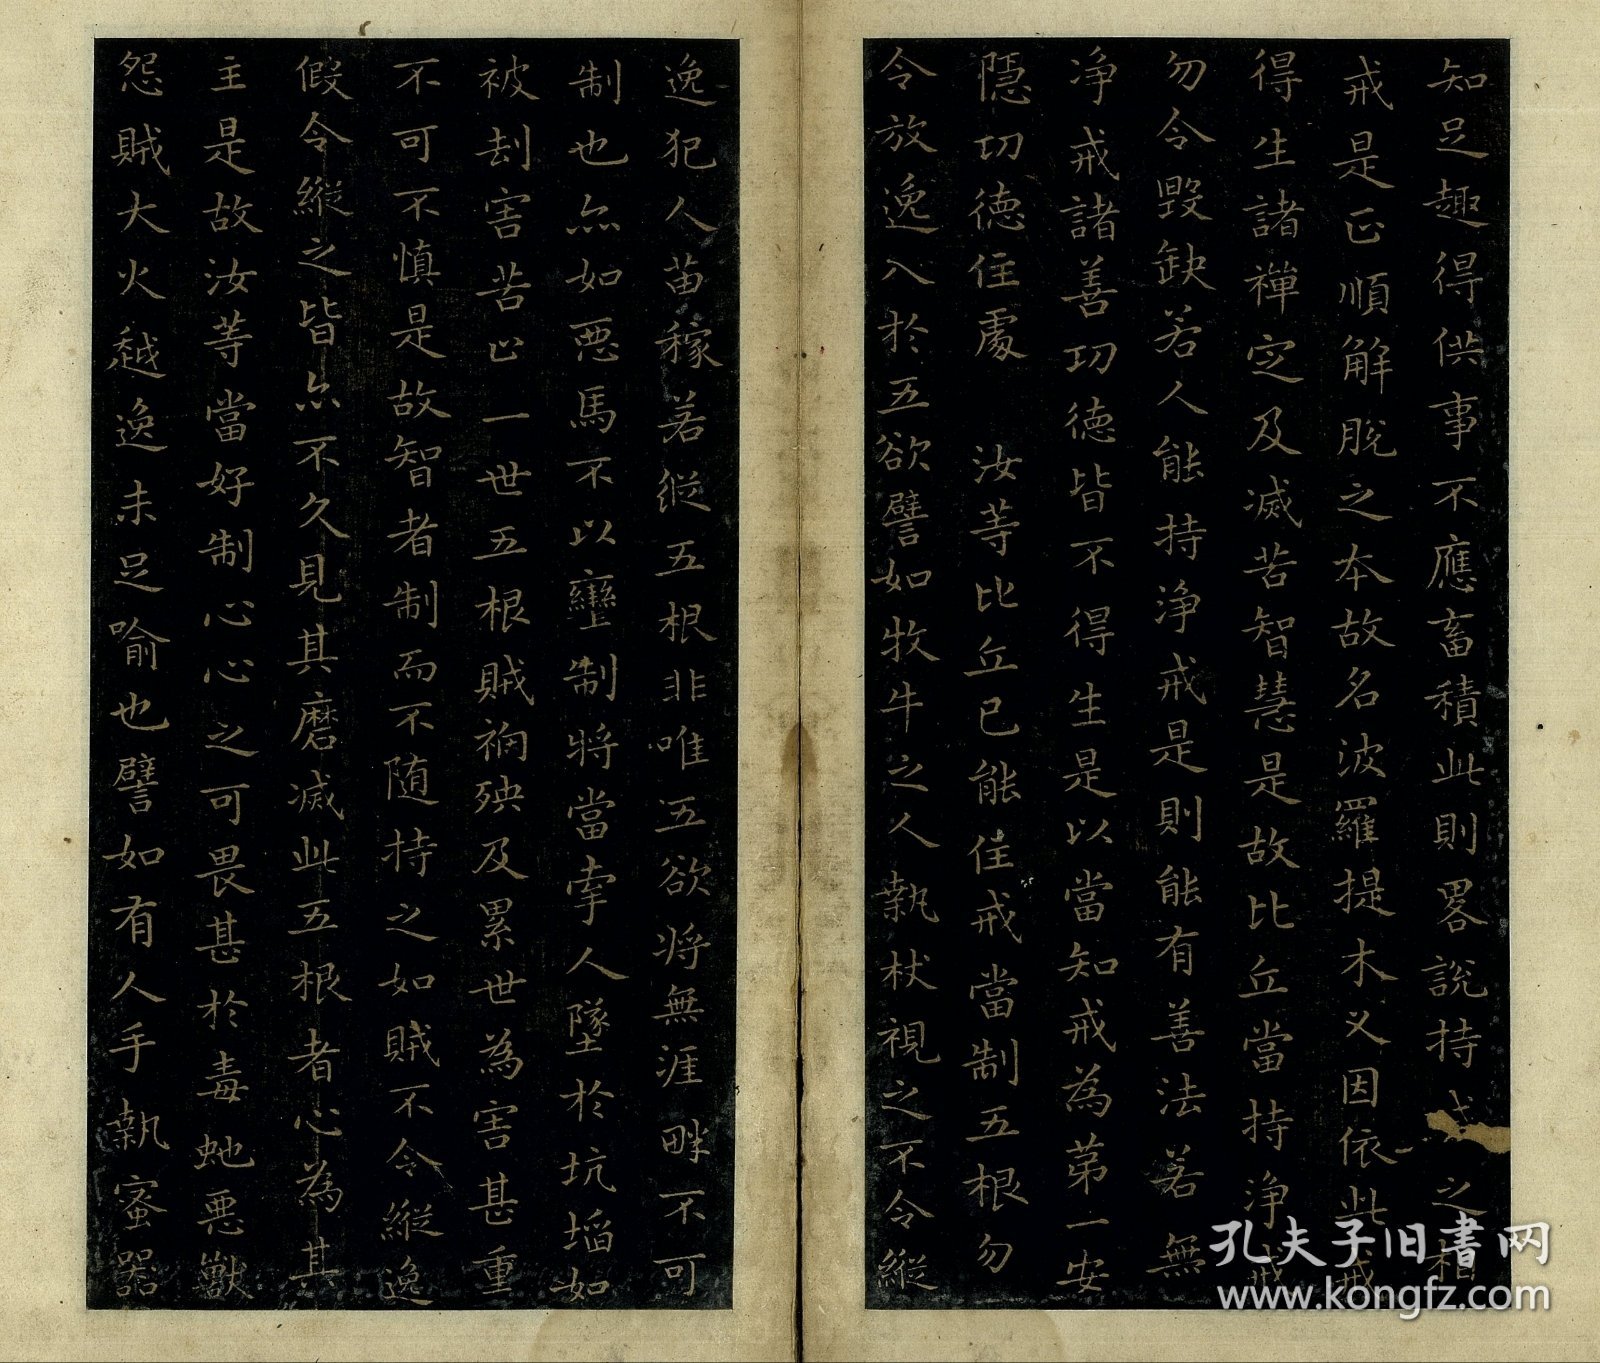 知足趣得供事不應畜積此則畧說持戒之相
戒是正順解脫之本故名波羅提木叉因依此戒
得生諸禪定及滅苦智慧是故比丘當持淨戒
勿令毀缺若人能持淨戒是則能有善法若無
淨戒諸善功德皆不得生是以當知戒為第一安
隱功德住處 汝等比丘已能住戒當制五根勿
令放逸入於五欲譬如牧牛之人執杖視之不令縱
逸犯人苗稼若縱五根非唯五欲將無涯畔不可
制也亦如惡馬不以轡制將當牽人墜於坑埳如
被刦害苦止一世五根賊禍殃及累世為害甚重
不可不慎是故智者制而不隨持之如賊不令縱逸
假令縱之皆亦不久見其磨滅此五根者心為其
主是故汝等當好制心心之可畏甚於毒虵惡獸
怨賊大火越逸未足喻也譬如有人手執蜜器
孔夫子旧書网
www.kongfz.com